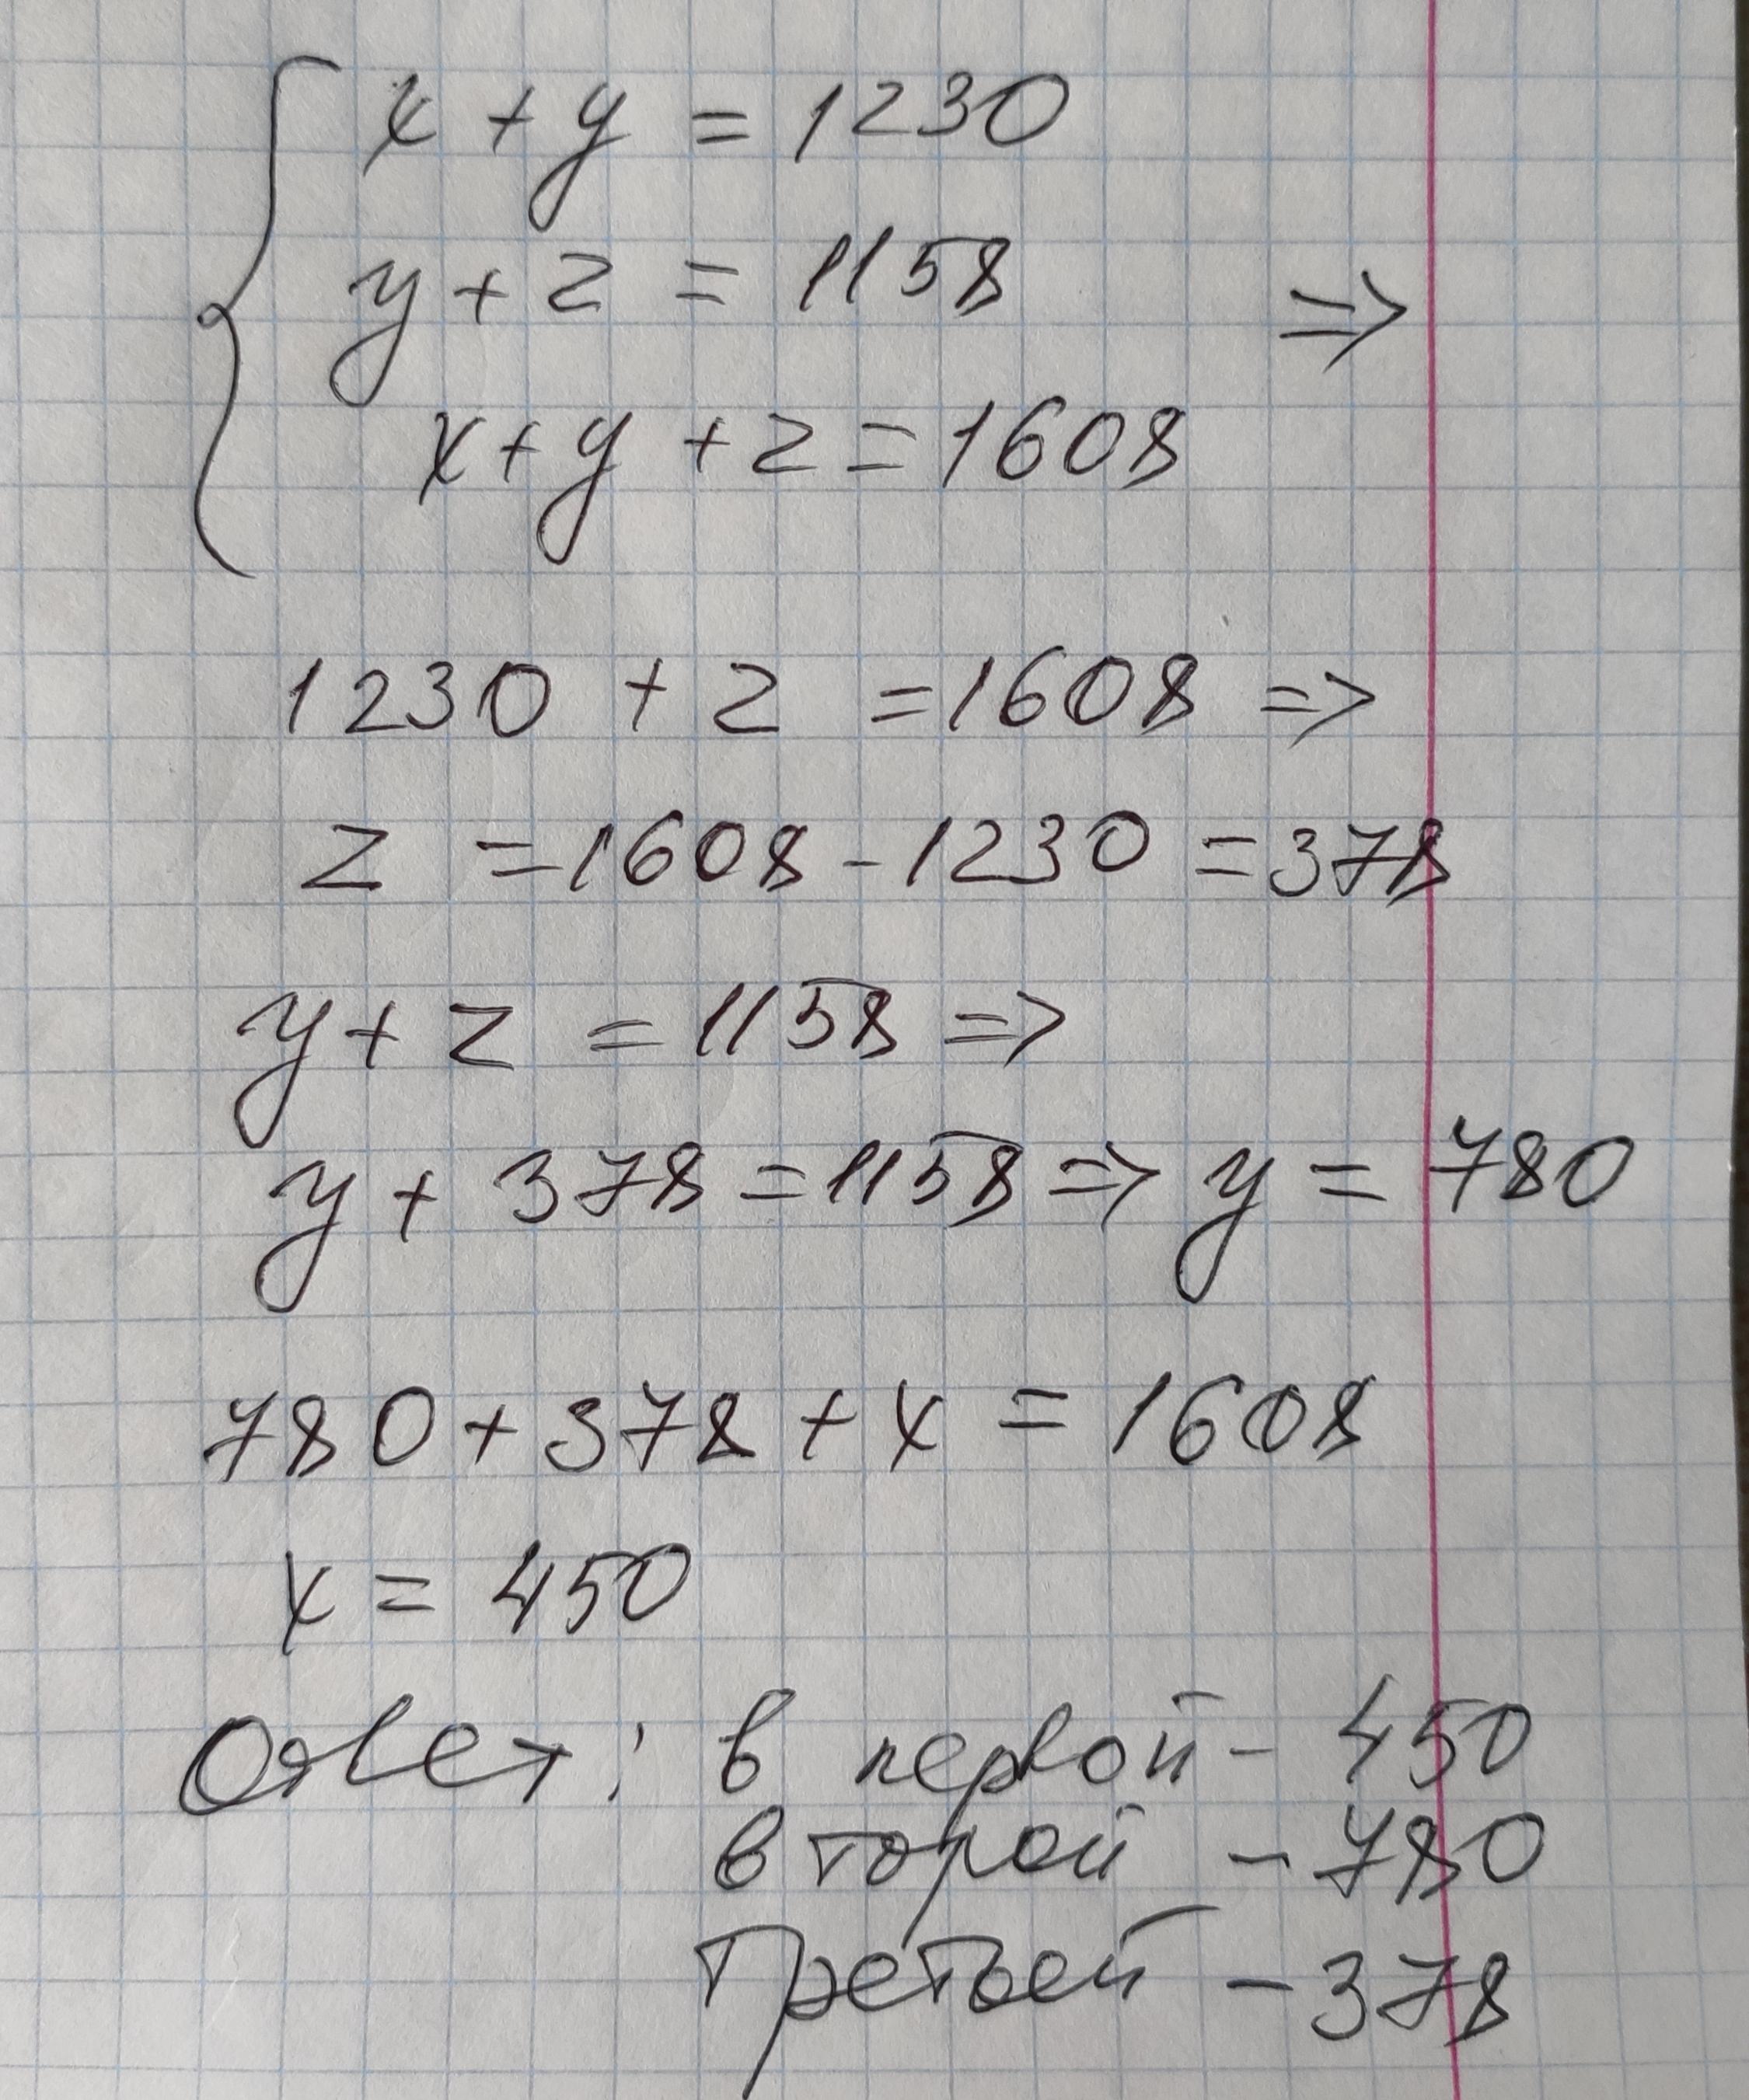 x + y = 1230
y + z = 1158 =>
x + y + z = 1608
1230 + z = 1608 =>
z = 1608 - 1230 = 378
y + z = 1158 =>
y + 378 = 1158 => y = 780
780 + 378 + x = 1608
x = 450
Ответ: в первой - 450
второй - 780
третьей - 378